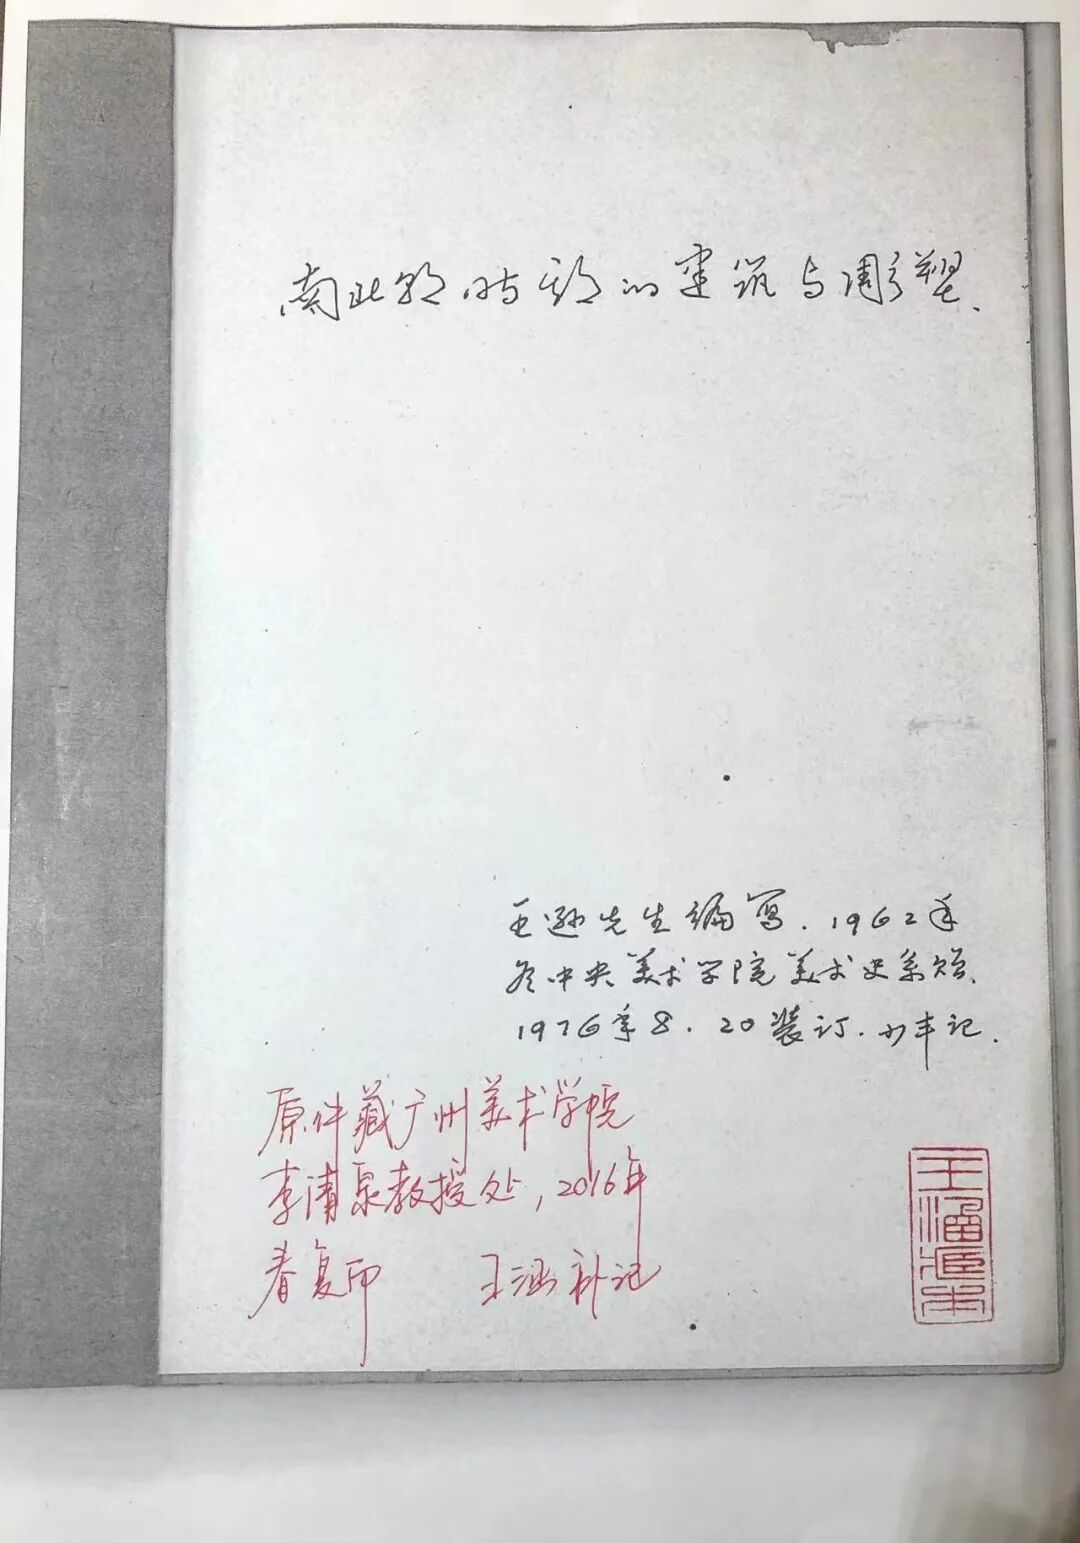 南北朝时期的建筑与雕塑、
王逊先生编写. 1962年
冬中央美术学院美术史系赠.
1976年8.20装订.少丰记.
原件藏广州美术学院
李清泉教授处,2016年
春复印 王涵补记
王涵藏书